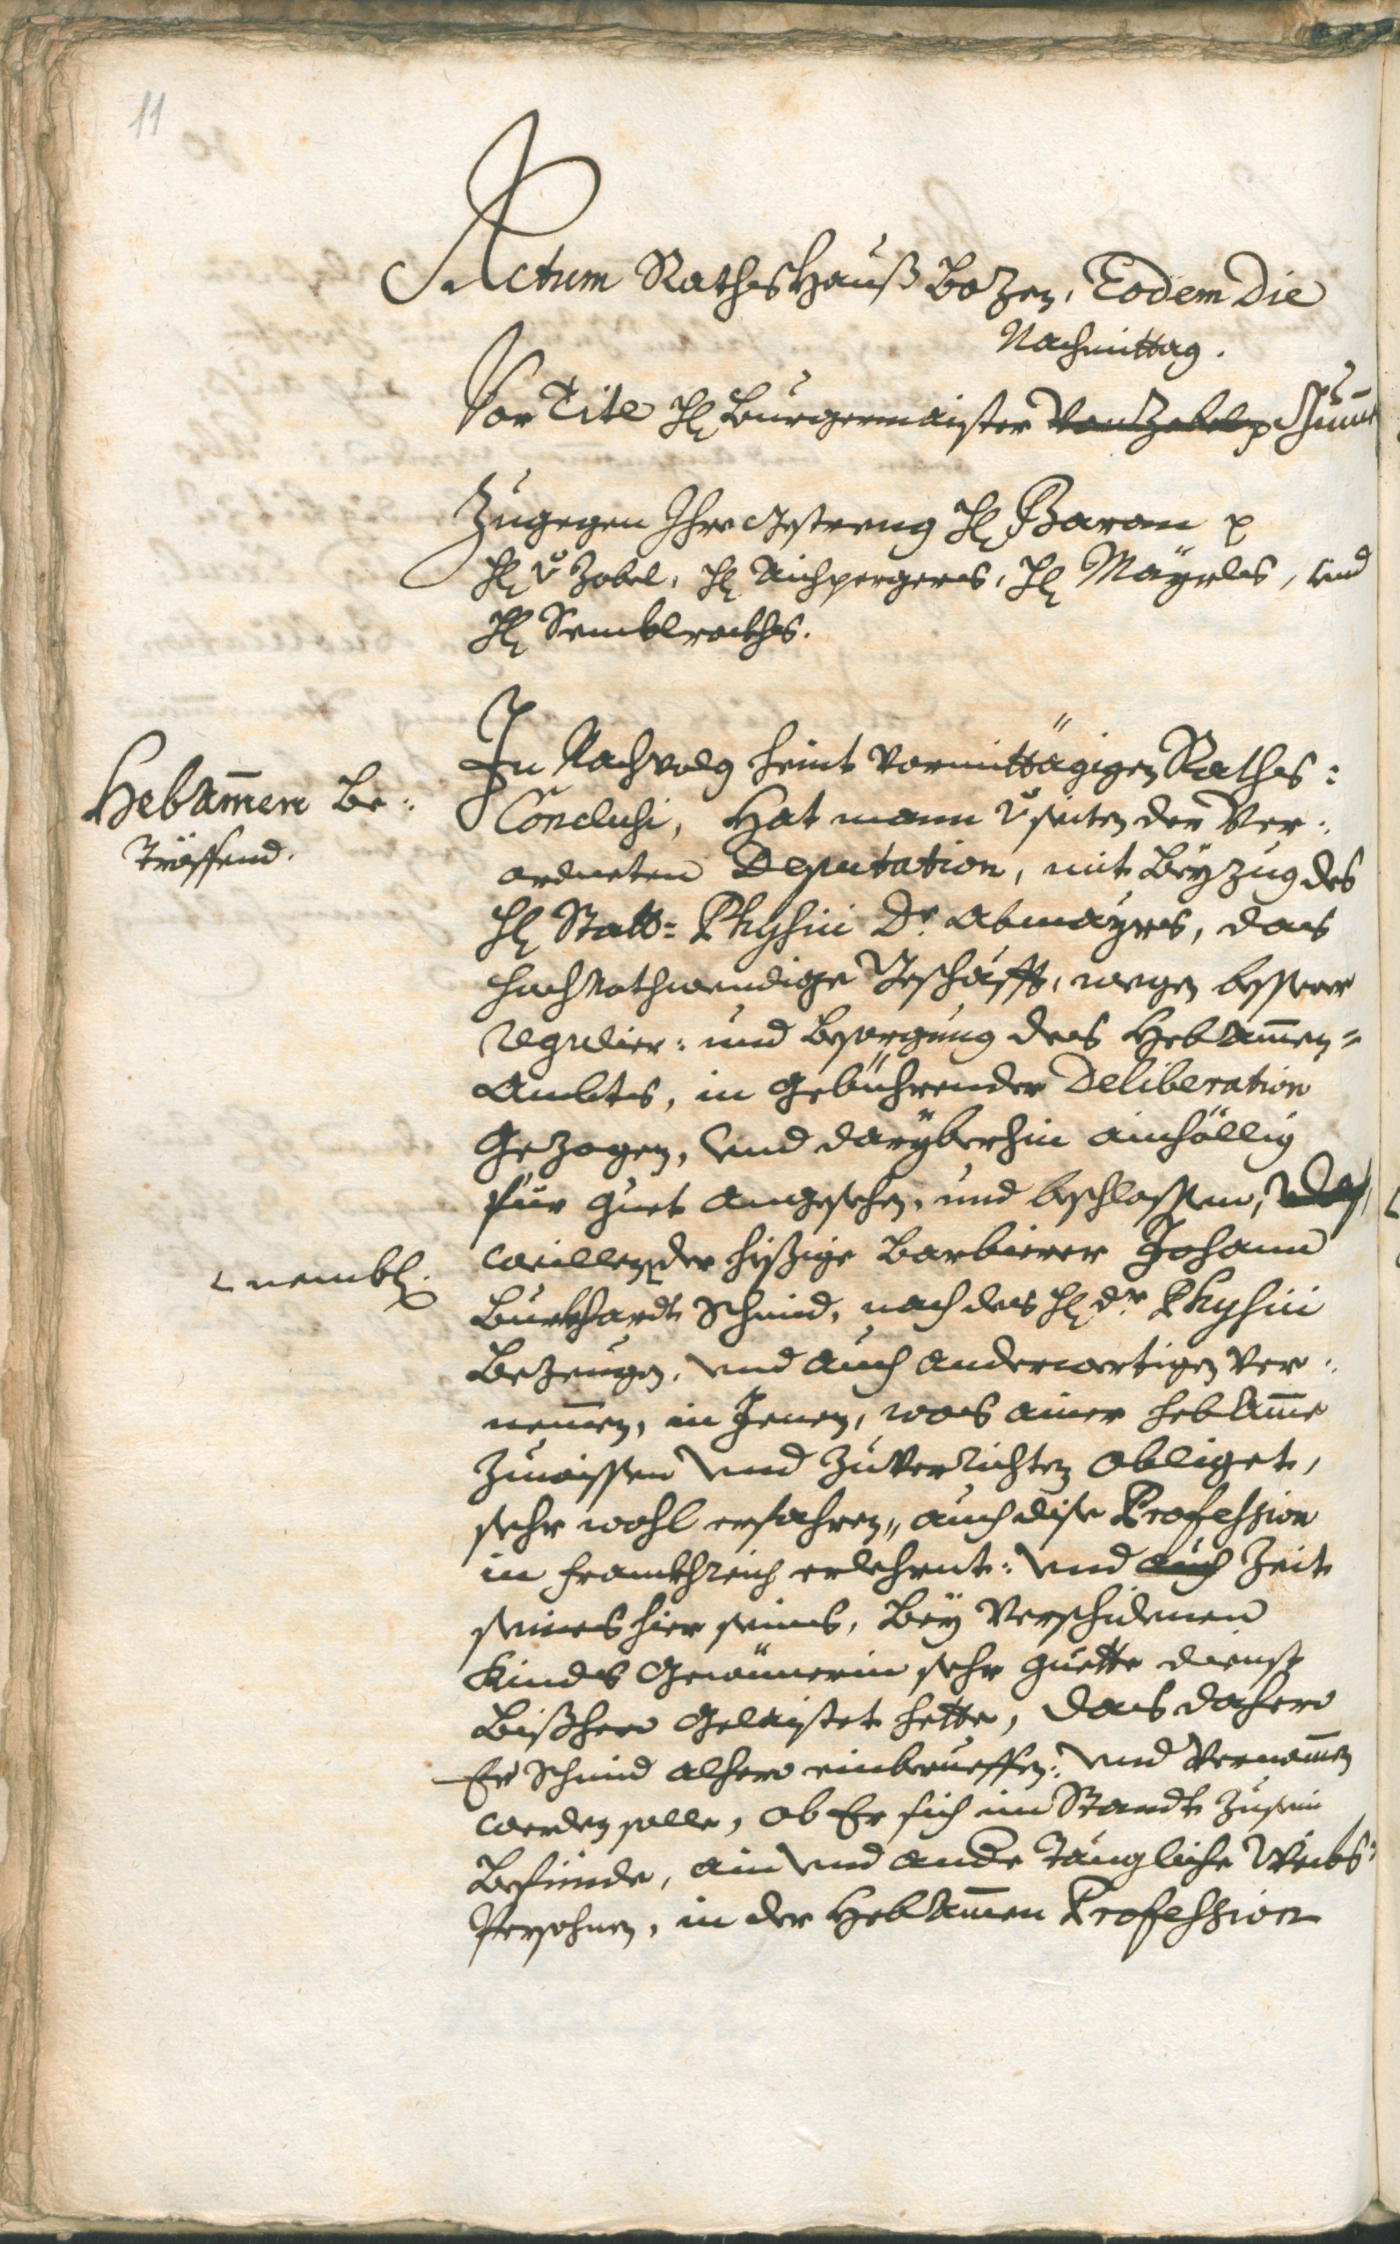 11
Actum Rathshauß Bozen, Eodem Die
Nachmittag.
Vor Tite H: Burgermaister von Zobel p
Zugegen Ihro Gestreng H: Baron p
H: v Zobel, H: Aichpergers, H: Mayrls, und
H: Semblrocks.
Hebam̄en Be:
tröffend.
In Nachvolg heint vormittägigen Raths:
Conclusi, Hat mann v seiten der Ver:
ordneten Deputation, mit Beyzug des
H: Statt= Physici Dr. Abmayrs, das
hochnothwendige Geschäfft, wegen besserer
Regulier: und besorgung des Hebam̄en=
Ambts, in gebührender Deliberation
gezogen, und darÿberhin ainhöllig
für guet angesehen, und beschlossen,
weillen der hießige Barbierer Johann
nembl:
Burkhardt Schmid, nach des H: Dr. Physici
Bezeugen, und auch anderwertigen ver:
nem̄en, in Jenen, was ainer hebam̄e
zuwissen und zuverrichten obliget,
sehr wohl erfahren, auch dise Profession
in Frankhreich erlehrnt: und auch Zeit
seines hier seins, bey verschidenen
Kinds Gewännerin sehr guette dienst
bißhero gelaistet hette, das dahero
Er Schmid alhero einberueffen: und vernom̄en
werden solle, ob Er sich im Standt zusein
befünde, ain und ande taugliche Weibs:
Persohnen, in der Hebam̄en Profession